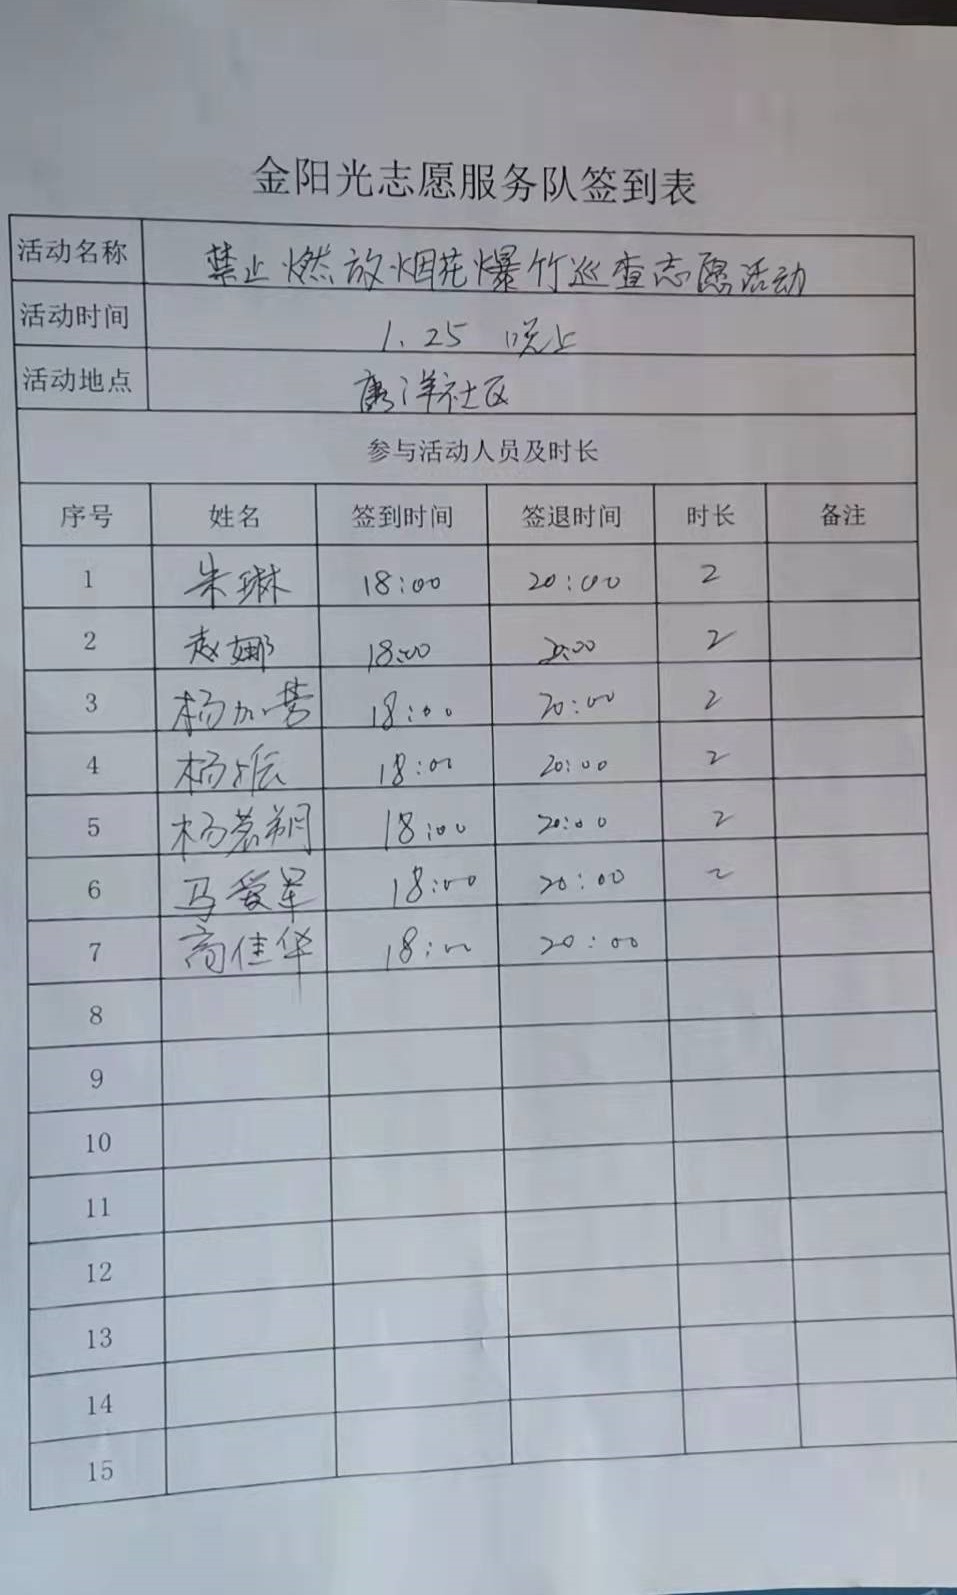 金阳光志愿服务队签到表
活动名称 禁止燃放烟花爆竹巡查志愿活动
活动时间 1.25 晚上
活动地点 唐洋社区
参与活动人员及时长
序号 姓名 签到时间 签退时间 时长 备注
1 朱琳 18:00 20:00 2
2 赵娜 18:00 20:00 2
3 杨加营 18:00 20:00 2
4 杨振 18:00 20:00 2
5 杨茗朔 18:00 20:00 2
6 马爱军 18:00 20:00 2
7 高佳华 18:00 20:00
8
9
10
11
12
13
14
15